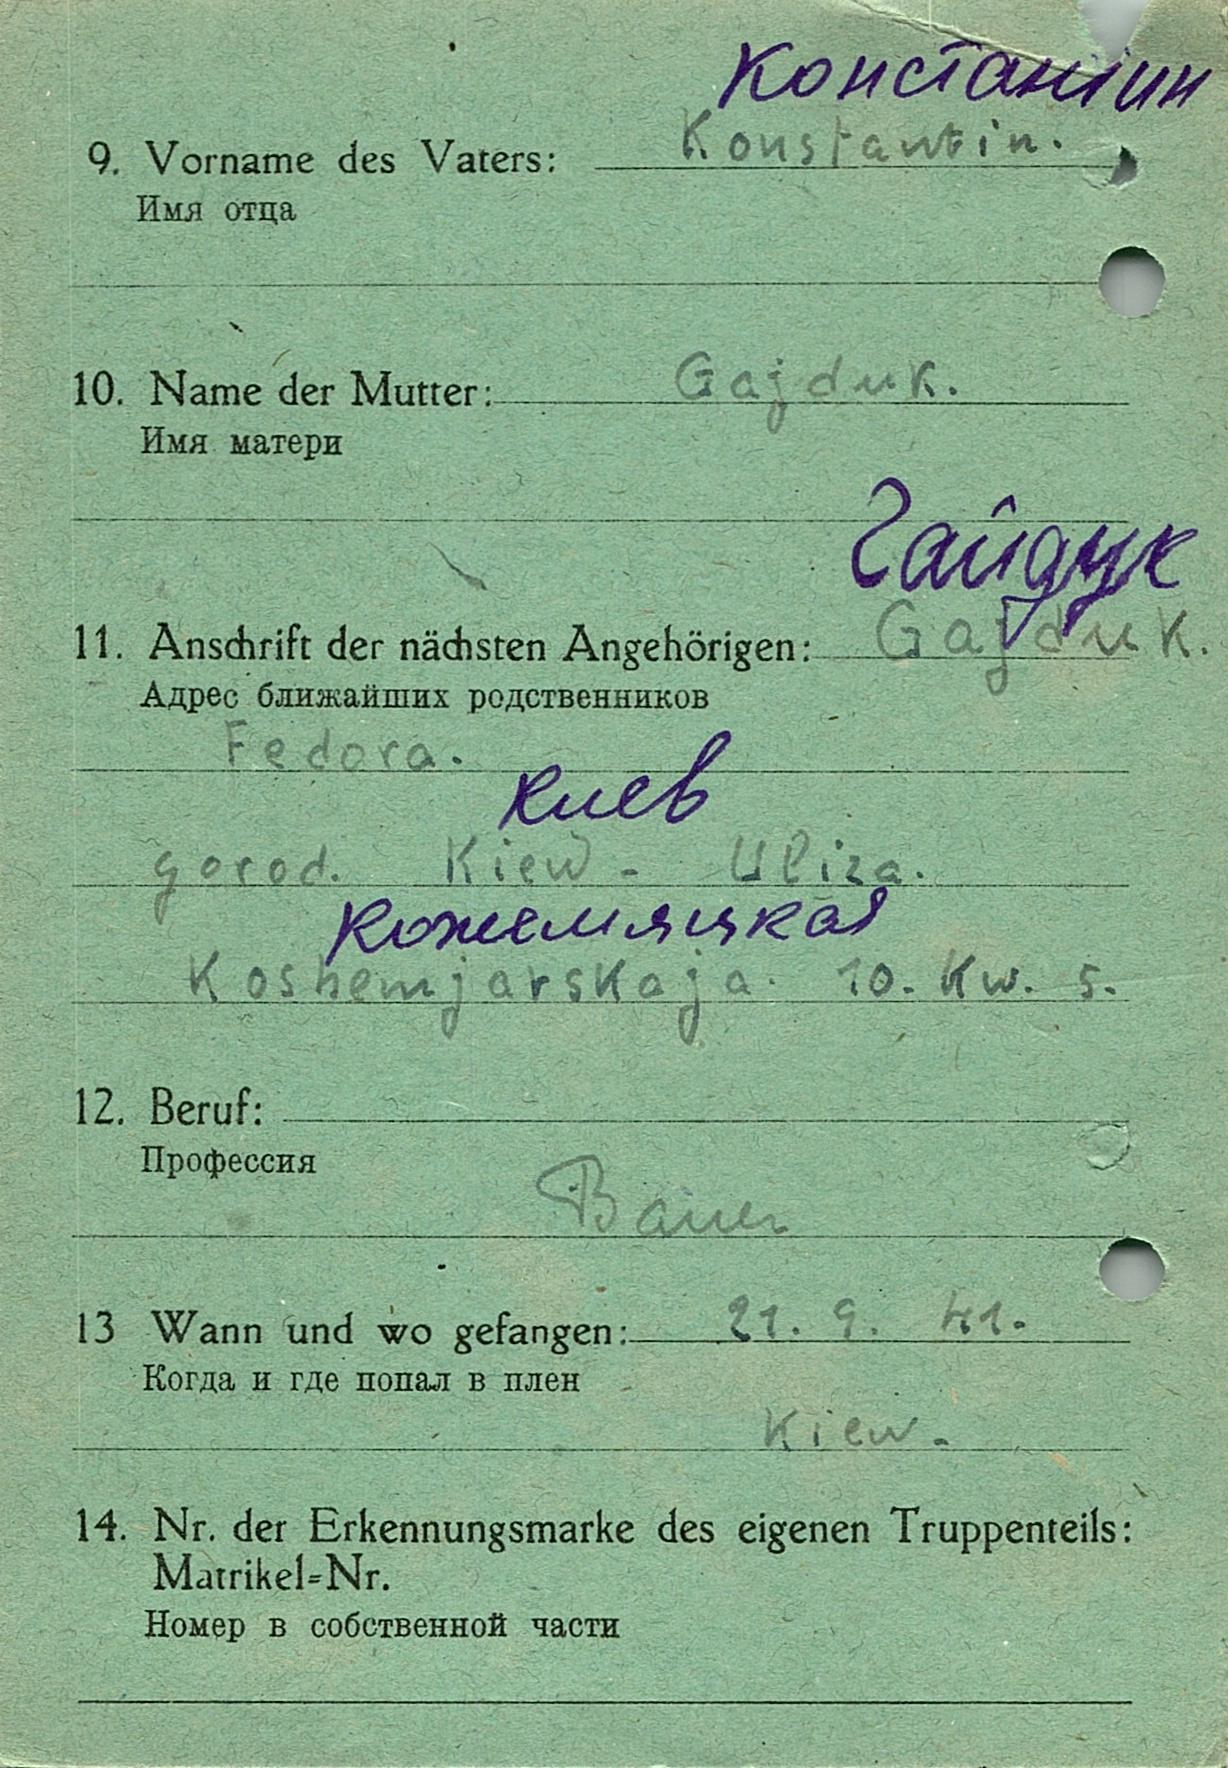 Константин
9. Vorname des Vaters: Konstantin.
Имя отца
10. Name der Mutter: Gajduk.
Имя матери
Гайдук
11. Anschrift der nächsten Angehörigen: Gajduk.
Адрес ближайших родственников
Fedora.
Киев
gorod. Kiew - Uliza.
Кожемяцкая
Koshemjarskaja. 10. Kw. 5.
12. Beruf:
Профессия
Bauer
13 Wann und wo gefangen: 21. 9. 41.
Когда и где попал в плен
Kiew.
14. Nr. der Erkennungsmarke des eigenen Truppenteils:
Matrikel=Nr.
Номер в собственной части